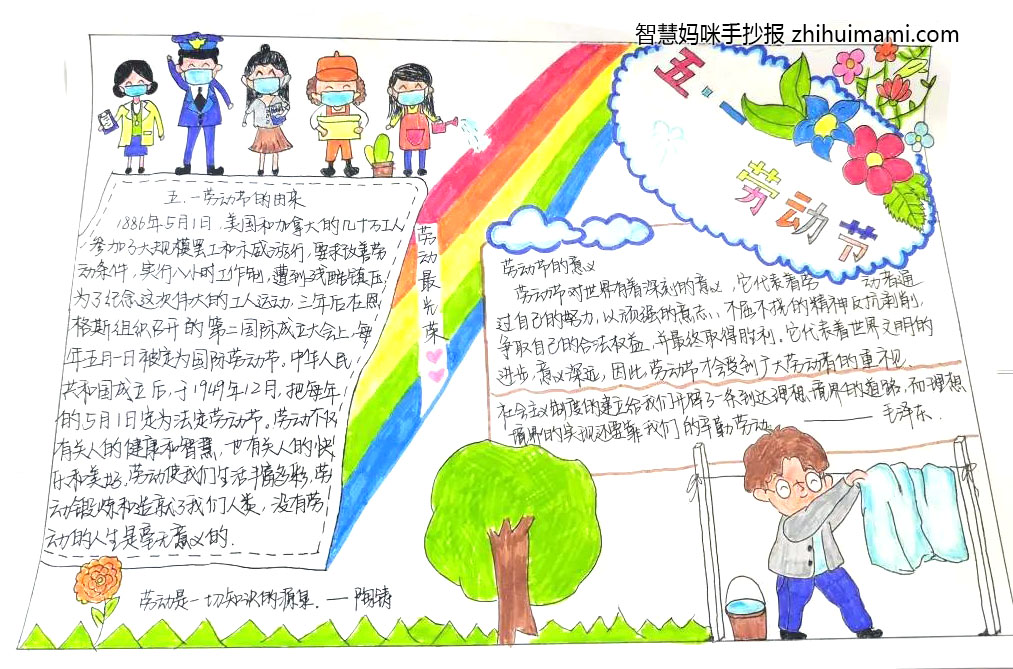 智慧妈咪手抄报 zhihuimami.com
五·一
劳动节
五.一劳动节的由来
1886年5月1日,美国和加拿大的几十万工人
参加了大规模罢工和示威游行,要求改善劳
动条件,实行八小时工作制,遭到残酷镇压
为了纪念这次伟大的工人运动,三年后在恩
格斯组织召开的第二国际成立大会上,每
年五月一日被定为国际劳动节。中华人民
共和国成立后,于1949年12月,把每年
的5月1日定为法定劳动节。劳动不仅
有关人的健康和智慧,也有关人的快
乐和美好,劳动使我们生活丰富多彩,劳
动锻炼和造就了我们人类,没有劳
动的人生是毫无意义的.
劳动最光荣
劳动节的意义
劳动节对世界有着深刻的意义,它代表着劳 动者通
过自己的努力,以顽强的意志、不屈不挠的精神反抗剥削,
争取自己的合法权益,并最终取得胜利。它代表着世界文明的
进步,意义深远,因此,劳动节才会受到广大劳动者的重视
社会主义制度的建立给我们开辟了一条到达理想境界的道路,和理想
境界的实现还要靠我们的辛勤劳动. ——毛泽东.
劳动是一切知识的源泉.——陶铸